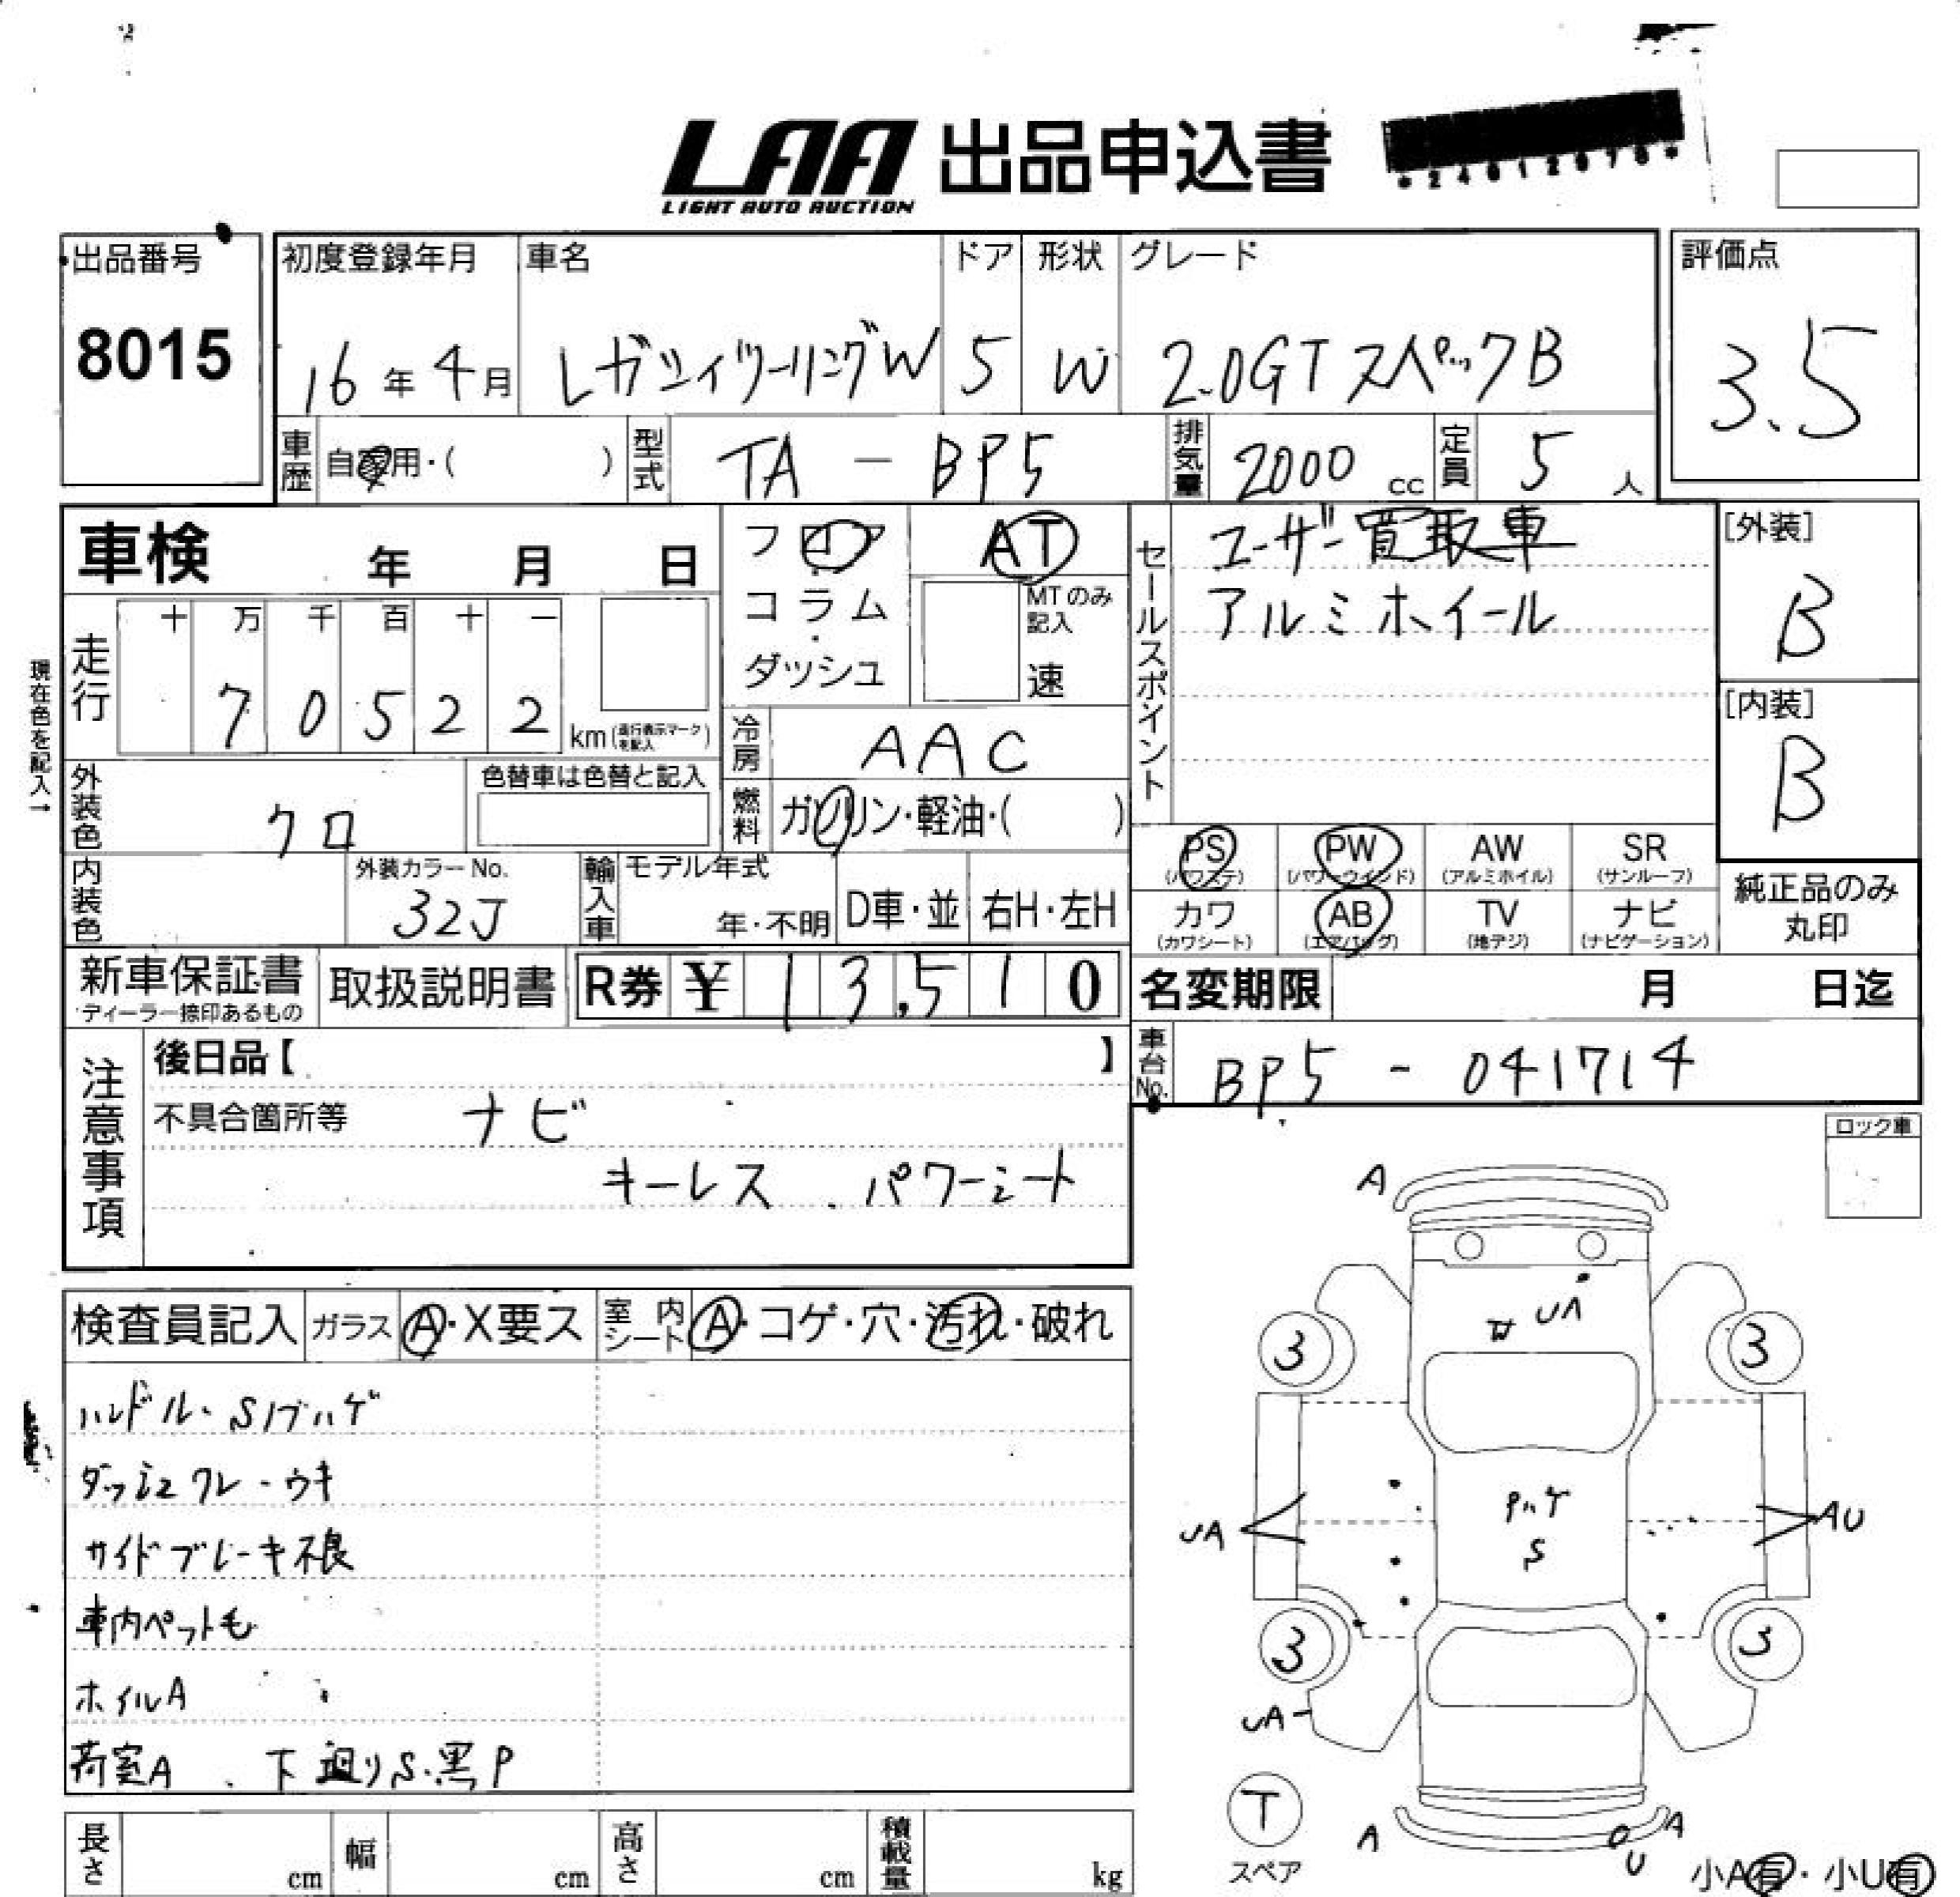 LAA 出品申込書
LIGHT AUTO AUCTION
*24012676*
出品番号
8015
初度登録年月
16年4月
車名
レガシィツーリングW
ドア
5
形状
W
グレード
2.0GT スペックB
評価点
3.5
車歴
自家用・( )
型式
TA - BP5
排気量
2000 cc
定員
5 人
車検 年 月 日
フロア・コラム・ダッシュ
AT
MTのみ記入
速
セールスポイント
ユーザー買取車
アルミホイール
[外装]
B
[内装]
B
現在色を記入→
走行
十 万 千 百 十 一
7 0 5 2 2
km(走行表示マークを記入)
冷房
AAC
外装色
クロ
色替車は色替と記入
燃料
ガソリン・軽油・( )
内装色
外装カラーNo.
32J
輸入車
モデル年式
年・不明
D車・並
右H・左H
PS
(パワステ)
PW
(パワーウインド)
AW
(アルミホイル)
SR
(サンルーフ)
カワ
(カワシート)
AB
(エアバッグ)
TV
(地デジ)
ナビ
(ナビゲーション)
純正品のみ
丸印
新車保証書
ディーラー捺印あるもの
取扱説明書
R券 ¥ 13,510
名変期限 月 日迄
車台No.
BP5 - 041714
注意事項
後日品【 】
不具合箇所等 ナビ
キーレス . パワーシート
ロック車
検査員記入
ガラス
A・X要ス
室内シート
A・コゲ・穴・汚れ・破れ
ハンドル・Sノブハゲ
ダッシュワレ・ウキ
サイドブレーキ不良
車内ペット毛
ホイルA
荷室A . 下廻りS.黒P
A
UA
3
3
Pハゲ
S
UA
AU
3
3
UA
T
スペア
A
A
U
小A有・小U有
長さ cm
幅 cm
高さ cm
積載量 kg